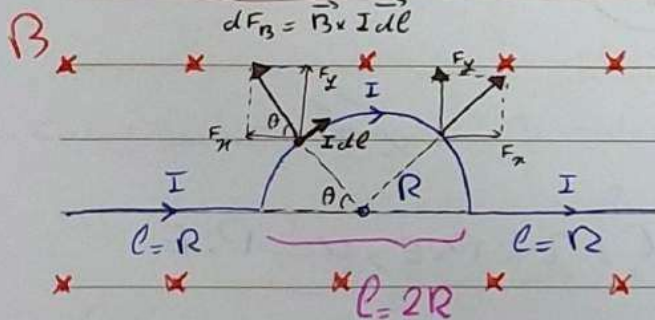 dF_B = B⃗ × I d⃗l
B
F_y
I
F_y
θ
F_x
I dl
F_x
I
θ
R
I
l = R
l = R
l = 2R